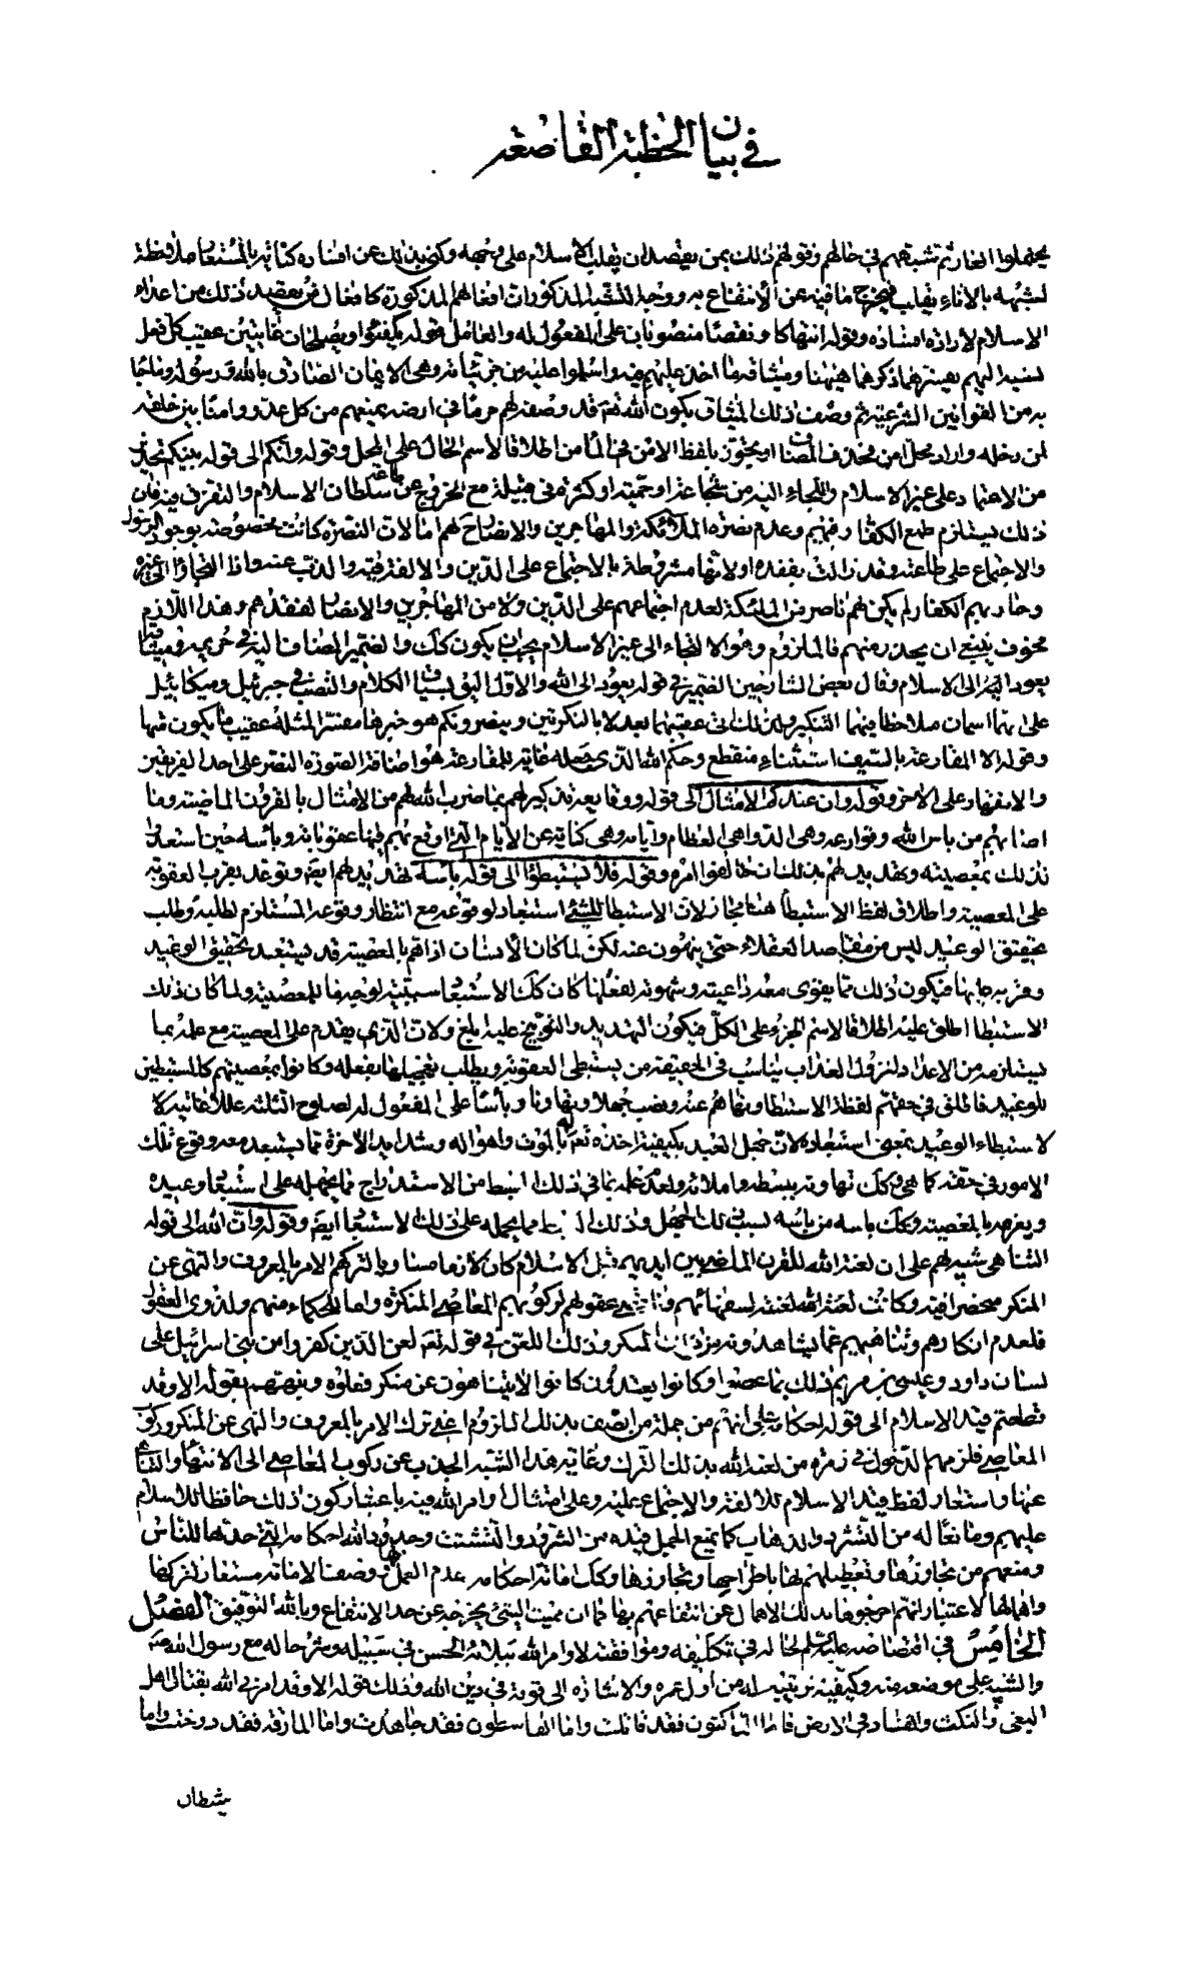 في بيان الخطبة القاصعة
يحتملوا العار ثم تشبههم في حالهم وقولهم ذلك بمن يقصد ان يقلب الاسلام على وجهه وكنى بذلك عن افساده كناية بالمستعار ملاحظة
لشبهه بالاناء يقلب فيخرج ما فيه عن الانتفاع به ووجه الشبه المذكور ان افعالهم المذكورة كافعال من يقصد ذلك من اعداء
الاسلام لارادة افساده وقوله انتهاكا ونقضا منصوبان على المفعول له والعامل قوله تكفئوا ويصلحان غايتين عقيب كل فعل
نسبه اليهم بعينه ما ذكره هيهنا وميثاقه ما اخذ عليهم فيه واسلموا عليه من جزئياته وهي الايمان الصادق بالله ورسوله وما جاء
به من القوانين الشرعية ثم وصف ذلك الميثاق بكون الله تعم قد وضعه لهم حرما في ارضه يمنعهم من كل عدو وامنا بين خلقه
لمن دخله واراد محل امن فحذف المضاف او تجوز بلفظ الامن في المأمن اطلاقا لاسم الحال على المحل وقوله وانكم الى قوله بينكم تحذير
من الاعتماد على غير الاسلام والالتجاء اليه من شجاعة او حمية او كثرة في قبيلة مع الخروج عن طاعة سلطان الاسلام والتفرق فيه فان
ذلك يستلزم طمع الكفار فيهم وعدم نصرة الملائكة والمهاجرين والانصار لهم اما لان النصرة كانت مخصوصة بوجود الرسول
والاجتماع على طاعته وقد زالت بفقده او لانها مشروطة بالاجتماع على الدين والالفة فيه والذب عنه واذا التجأوا الى غيره
وحاربهم الكفار لم يكن لهم ناصر من الملئكة لعدم اجتماعهم على الدين ولا من المهاجرين والانصار لفقدهم وهذا اللازم
مخوف ينبغي ان يحذر منهم فالملزوم وهو الالتجاء الى غير الاسلام يجب ان يكون كك والضمير المضاف اليه في حريمه وميثاقه
يعود الى الاسلام وقال بعض الشارحين الضمير في قوله يعود الى الله والاول اليق بسياق الكلام والنصب في جبرئيل وميكائيل
على انهما اسمان ملاحظا فيهما التنكير ولذلك اتى عقيبهما بعد لا بالنكرتين وينصرونكم هو خبر ما مفسرا لمثله عقيب ما يكون فيها
وقوله الا المقارعة بالسيف استثناء منقطع وحكم الله الذي جعله غاية للمقارعة هو اضافة الصورة النصر على احد الفريقين
والانقهار على الاخر وقوله وان عندكم الامثال الى قوله ووقايعه تذكير لهم بما ضرب الله لهم من الامثال بالقرون الماضية وما
اصابهم من باس الله وقوارعه وهي الدواهي العظام وايامه وهي كناية عن الايام التي اوقع بهم فيها عقوباته وبأسه حين استعدوا
لذلك بمعصيته وتهديد لهم بذلك ان خالفوا امره وقوله فلا تستبطؤا الى قوله بأسه تهديد لهم ايضا وتوعد بقرب العقوبة
على المعصية واطلاق لفظ الاستبطاء هنا مجاز لان الاستبطاء للشئ استبعاد لوقوعه مع انتظار وقوعه المستلزم لطلبه وطلب
تحقق الوعيد ليس من مقاصد العقلاء حتى ينهون عنه لكن لما كان الانسان اذا هم بالمعصية قد يستبعد تحقيق الوعيد
الاستبطاء اطلق عليه اطلاقا لاسم الجزء على الكل فيكون التهديد والتوبيخ عليه ابلغ ولان الذي يقدم على المعصية مع علمه بما
يستلزمه من الاعداد لنزول العذاب يناسب في الحقيقة من يستبطئ العقوبة ويطلب تعجيلها بفعله وكانوا بمعصيتهم كالمستبطئين
للوعيد فاطلق في حقهم لفظ الاستبطاء ونهاهم عنه ونصب جهلا وتهاونا وبأسا على المفعول له لصلوح الثلثة عللا غائية
لاستبطاء الوعيد بمعنى استبعاده لان جهل العبد بكيفية اخذه تعم بالموت واهواله وشدايد الاخرة مما يستبعد معه وقوع تلك
الامور في حقه كما هي وكك تهاونه ببسطه
التناهي تنبيه لهم على ان لعنة الله للقرن الماضي بين ايديهم قبل الاسلام كان لازما مساويا لتركهم الامر بالمعروف والنهي عن
المنكر منحصرا فيه وكانت لعنة الله لعنة لسفهائهم لركوبهم المعاصي المنكرة واما الحكماء منهم ولذوي العقول
فلعدم انكارهم وتناهيهم عما يشاهدونه من المنكر وذلك اللعن في قوله تعم لعن الذين كفروا من بني اسرائيل على
لسان داود وعيسى بن مريم ذلك بما عصوا وكانوا يعتدون كانوا لا يتناهون عن منكر فعلوه وينبههم بقوله الا وقد
قطعتم قيد الاسلام الى قوله احكامه على انهم من جملة من اتصف بذلك الملزوم اعني ترك الامر بالمعروف والنهي عن المنكر وركوب
المعاصي فلزمهم الدخول في زمرة من لعنه الله بذلك الترك وغاية هذا التنبيه الجذب عن ركوب المعاصي الى الانتهاء والتناهي
عنها واستعار لفظ قيد الاسلام للالفة والاجتماع عليه وعلى امتثال اوامر الله فيه باعتبار كون ذلك حافظا للاسلام
عليهم ومانعا له من التشرد والذهاب كما يمنع الجمل قيده من الشرود والتشتت وحدود الله احكامه التي حدها للناس
ومنعهم من تجاوزها وتعطيلهم لها باطراحها وتجاوزها وكك اماتة احكامه عدم العمل بها ووصف الاماتة مستعار لتركها
واهمالها لاعتبار انهم اخرجوها بذلك الاهمال عن انتفاعهم بها كما ان مميت الشئ يخرجه عن حد الانتفاع وبالله التوفيق الفصل
الخامس في اقتصاصه عليه السلم لحاله في تكليفه وموافقته لاوامر الله ببلائه الحسن في سبيله وشرح حاله مع رسول الله ص
والتنبيه على موضعه منه وكيفية تربيته له من اول عمره والاشارة الى قوته في دين الله وذلك قوله الا وقد امرني الله بقتال اهل
البغي والنكث والفساد في الارض فاما الناكثون فقد قاتلت واما القاسطون فقد جاهدت واما المارقة فقد دوخت واما
شيطان